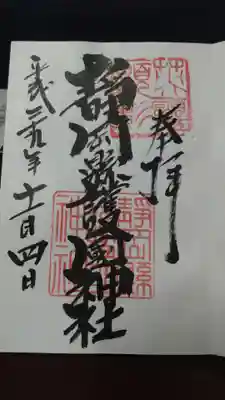 奉拝
英靈顯彰
静岡縣護國神社
靜岡縣護國神社
平成二九年十一月四日